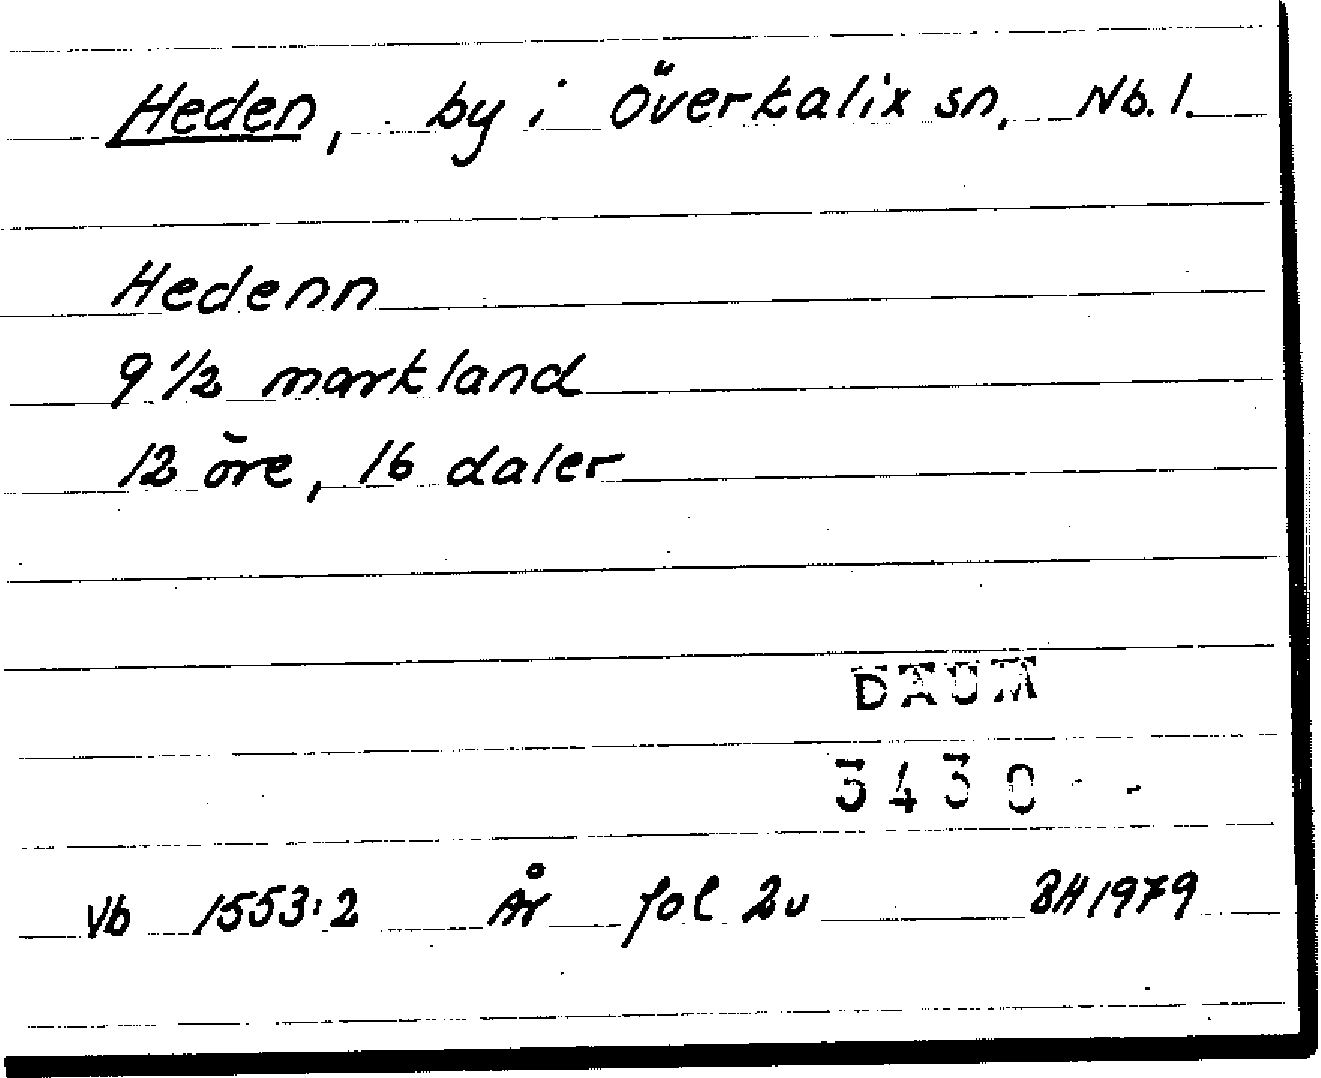 Heden, by i Överkalix sn, Nb. l.
Hedenn
9 1/2 markland
12 öre, 16 daler
DAUM
3430
Vb 1553:2 År fol 2v BH 1979